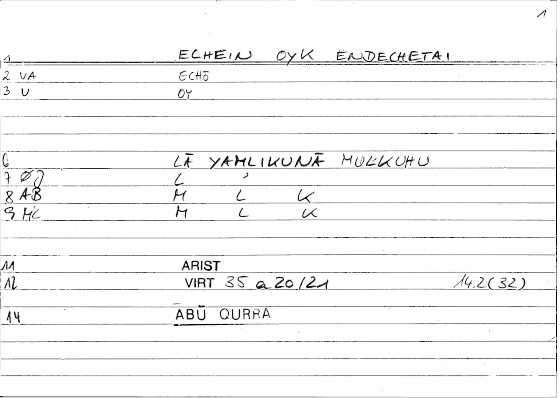 1
1 ECHEIN OYK ENDECHETAI
2 VA ECHŌ
3 U OY
6 LĀ YAMLIKUNĀ MULKUHU
7 L ʾ
8 AB M L K
9 MĊ M L K
11 ARIST
12 VIRT 35 a 20/21 14.2(32)
14 ABŪ QURRA